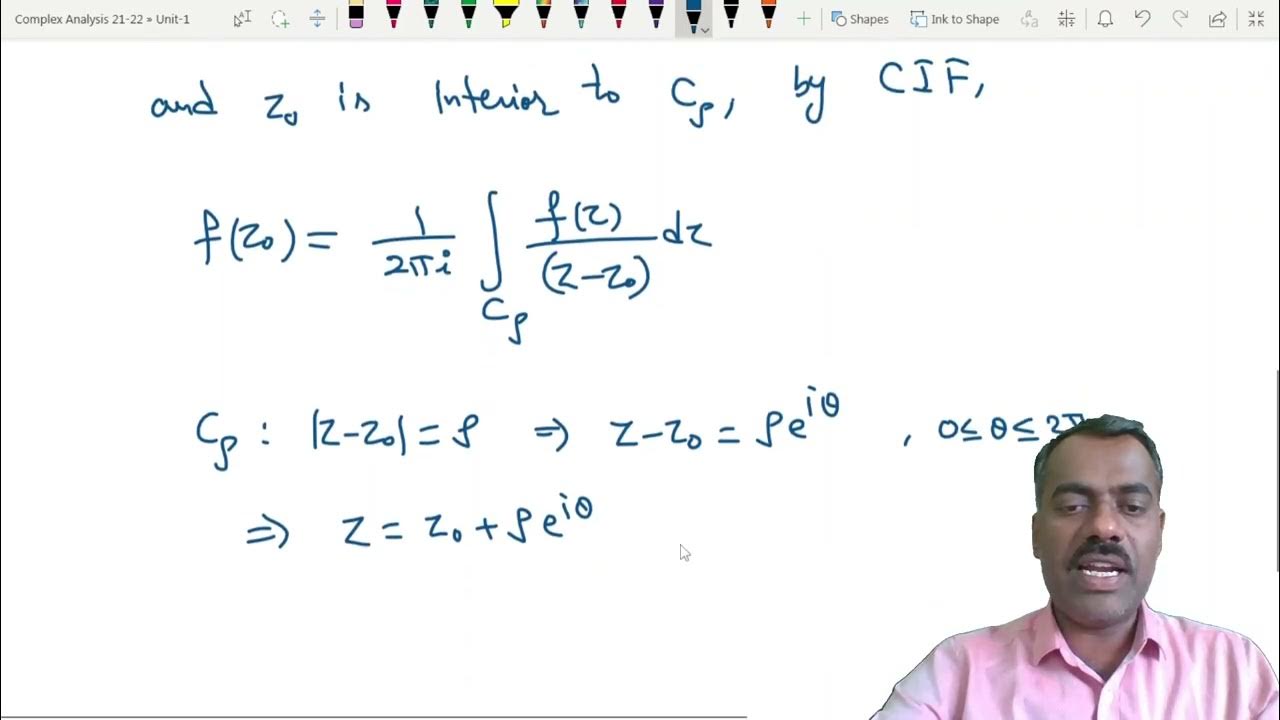 Complex Analysis 21-22 » Unit-1
Shapes
Ink to Shape
and z₀ is Interior to Cρ, by CIF,
f(z₀) = 1/2πi ∫Cρ f(z)/(z-z₀) dz
Cρ : |z-z₀| = ρ ⇒ z-z₀ = ρe^iθ , 0 ≤ θ ≤ 2π
⇒ z = z₀ + ρe^iθ